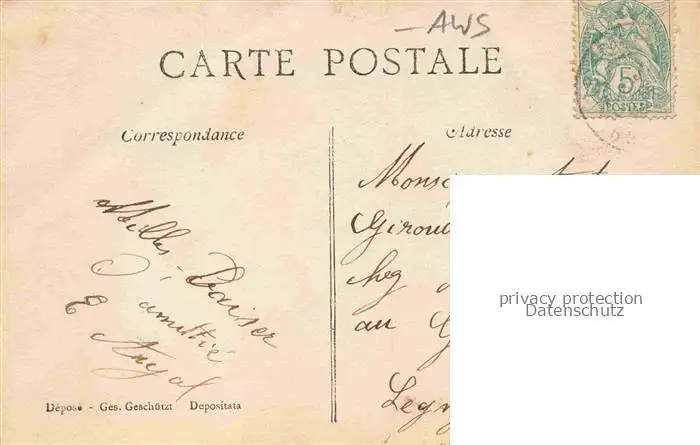 AWS
CARTE POSTALE
5c
POSTES
Correspondance
Adresse
Milles Baiser
D'amitié
E
Monsi
Girou
chez
au
Legn
privacy protection
Datenschutz
Déposé - Ges. Geschützt Depositata